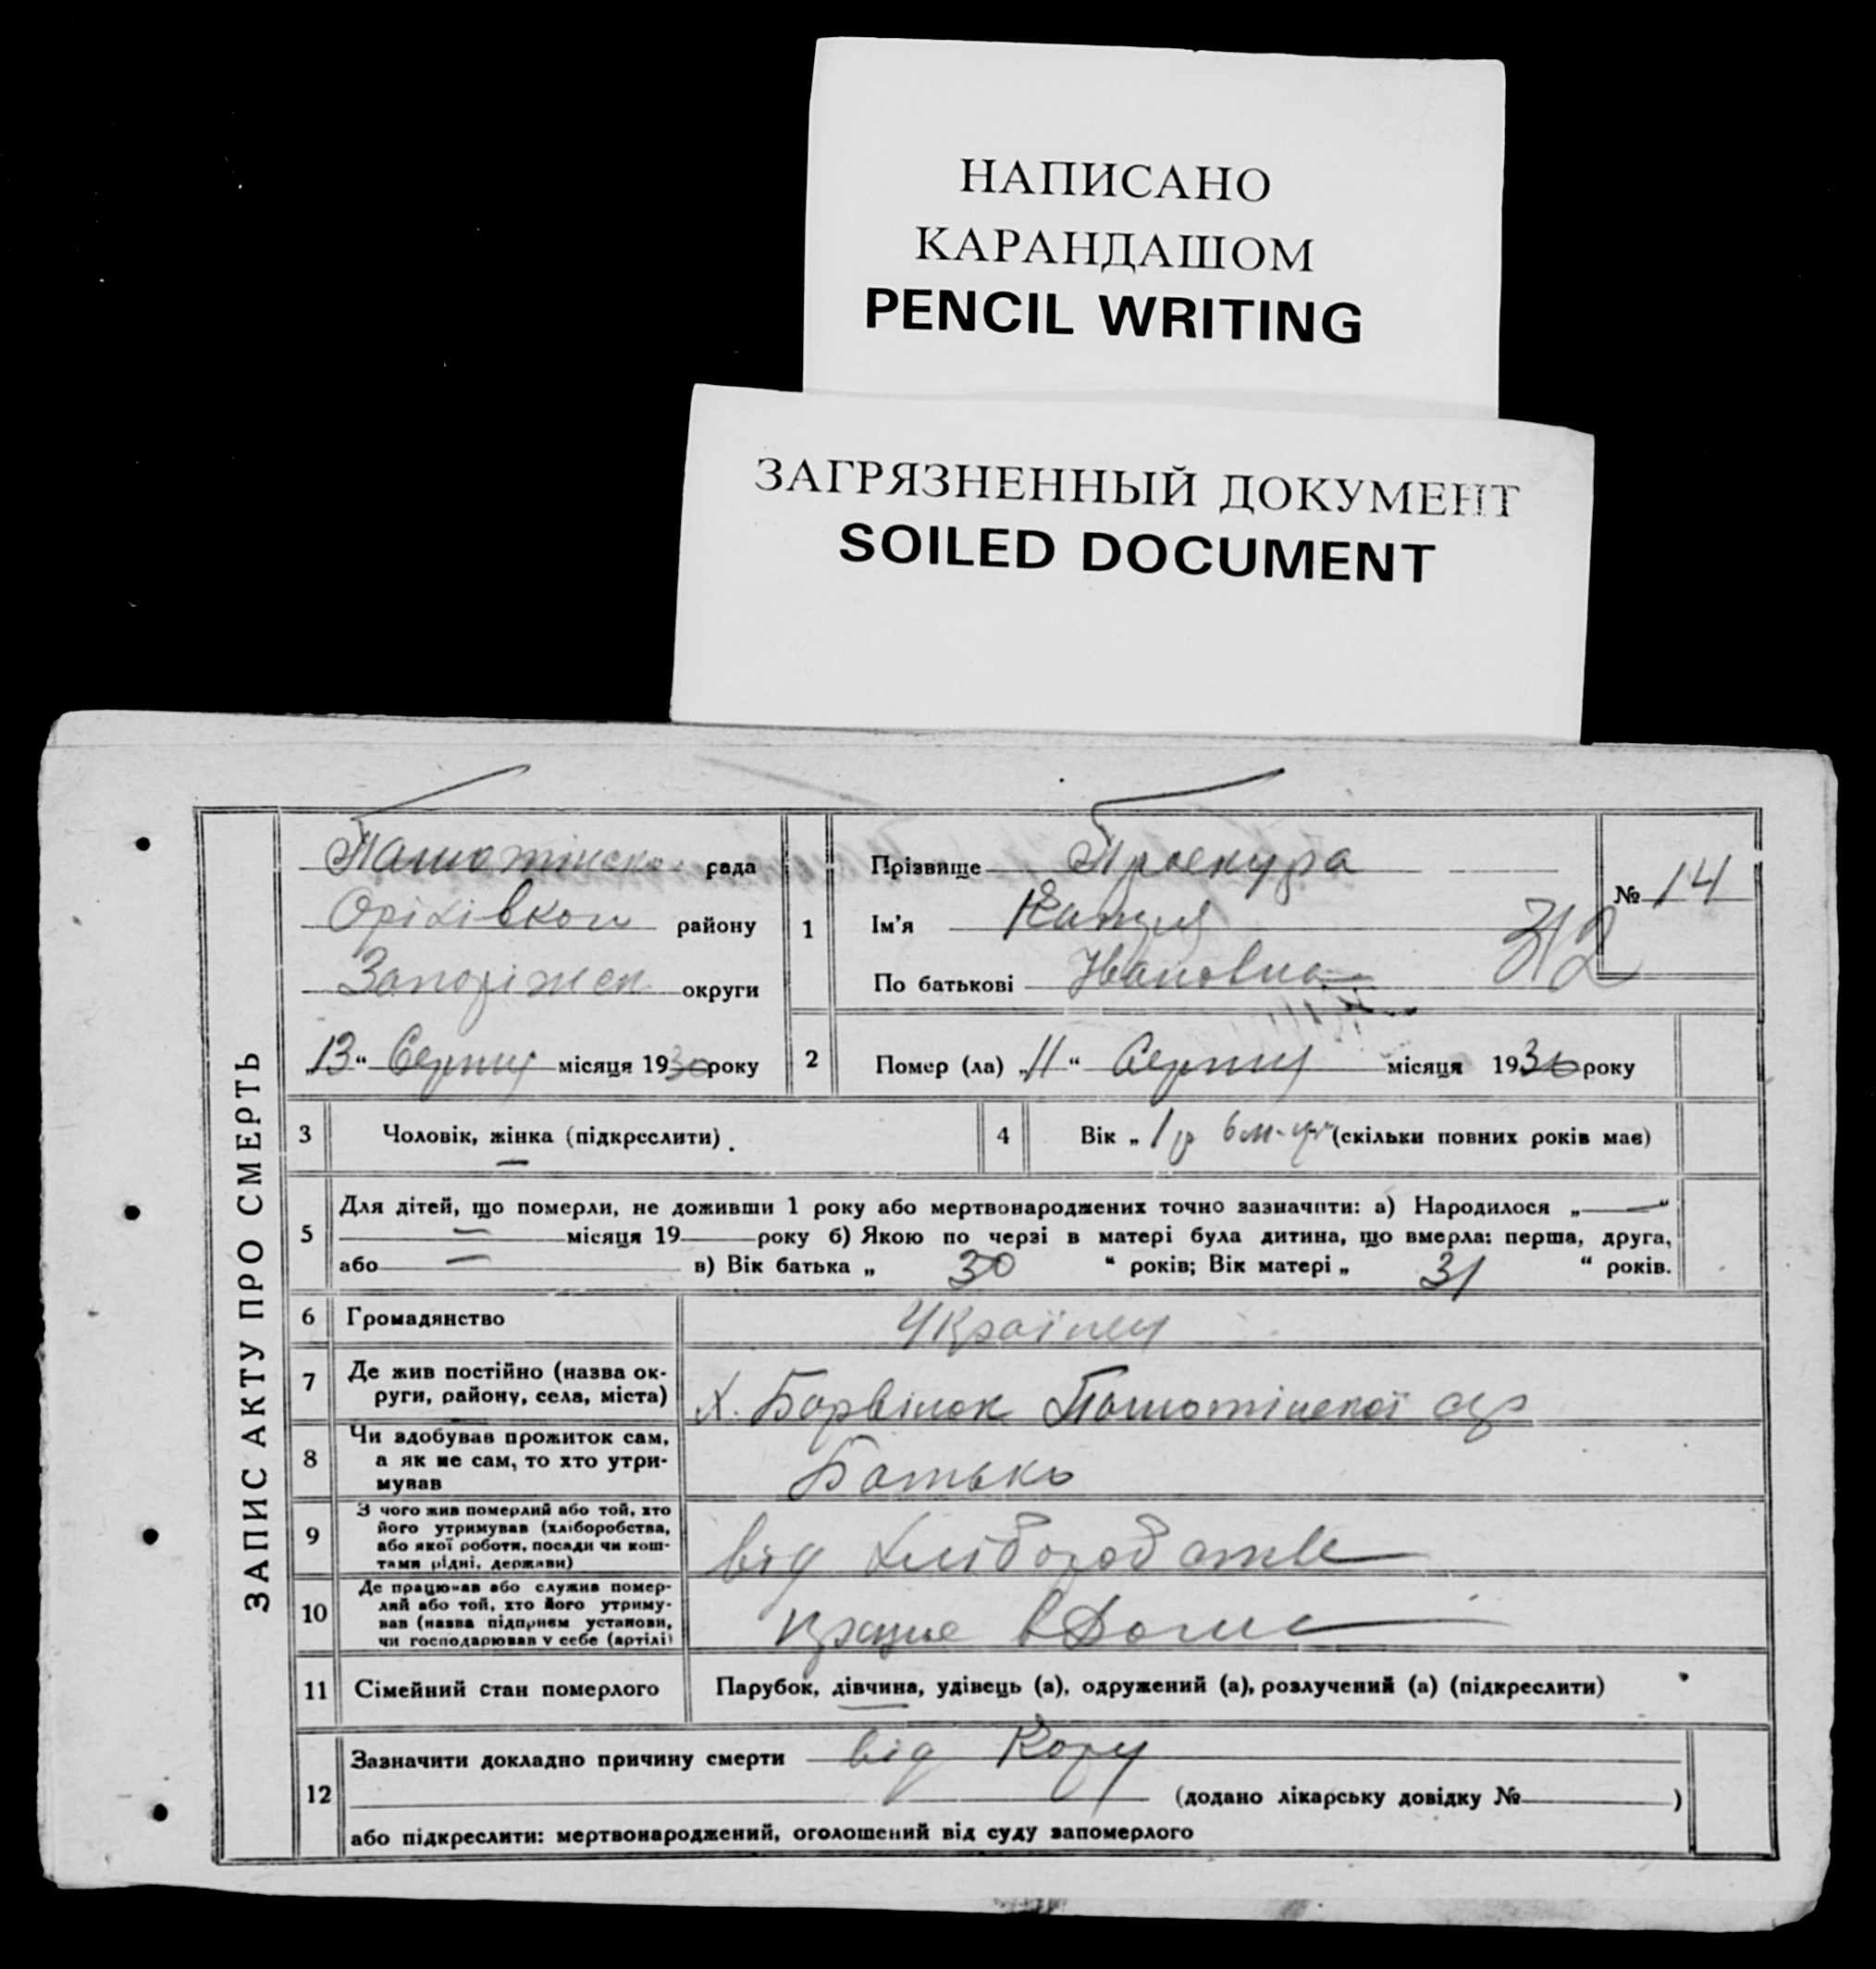 НАПИСАНО
КАРАНДАШОМ
PENCIL WRITING
ЗАГРЯЗНЕННЫЙ ДОКУМЕНТ
SOILED DOCUMENT
ЗАПИС АКТУ ПРО СМЕРТЬ
рада
району
Запоріжск округи
„13“ Серпня місяця 1930 року
1
Прізвище Проскура
Ім'я Катря
По батькові Ивановна
№ 14
312
2
Помер (ла) „11“ Серпня місяця 1930 року
3
Чоловік, жінка (підкреслити).
4
Вік „1 р 6 м-ців“ (скільки повних років має)
5
Для дітей, що померли, не доживши 1 року або мертвонароджених точно зазначити: а) Народилося „—“
— місяця 19 року б) Якою по черзі в матері була дитина, що вмерла: перша, друга,
або — в) Вік батька „ 30 “ років; Вік матері „ 31 “ років.
6
Громадянство
Українец
7
Де жив постійно (назва ок-
руги, району, села, міста)
Х. Барвінок
8
Чи здобував прожиток сам,
а як не сам, то хто утри-
мував
Батько
9
З чого жив померлий або той, хто
його утримував (хліборобства,
або якої роботи, посади чи кош-
тами рідні, держави)
від хліборобства
10
Де працював або служив помер-
лий або той, хто його утриму-
вав (назва підприєм установи,
чи господарював у себе (артілі)
працює в Дома
11
Сімейний стан померлого
Парубок, дівчина, удівець (а), одружений (а), розлучений (а) (підкреслити)
12
Зазначити докладно причину смерти від Кору
(додано лікарську довідку № )
або підкреслити: мертвонароджений, оголошений від суду запомерлого